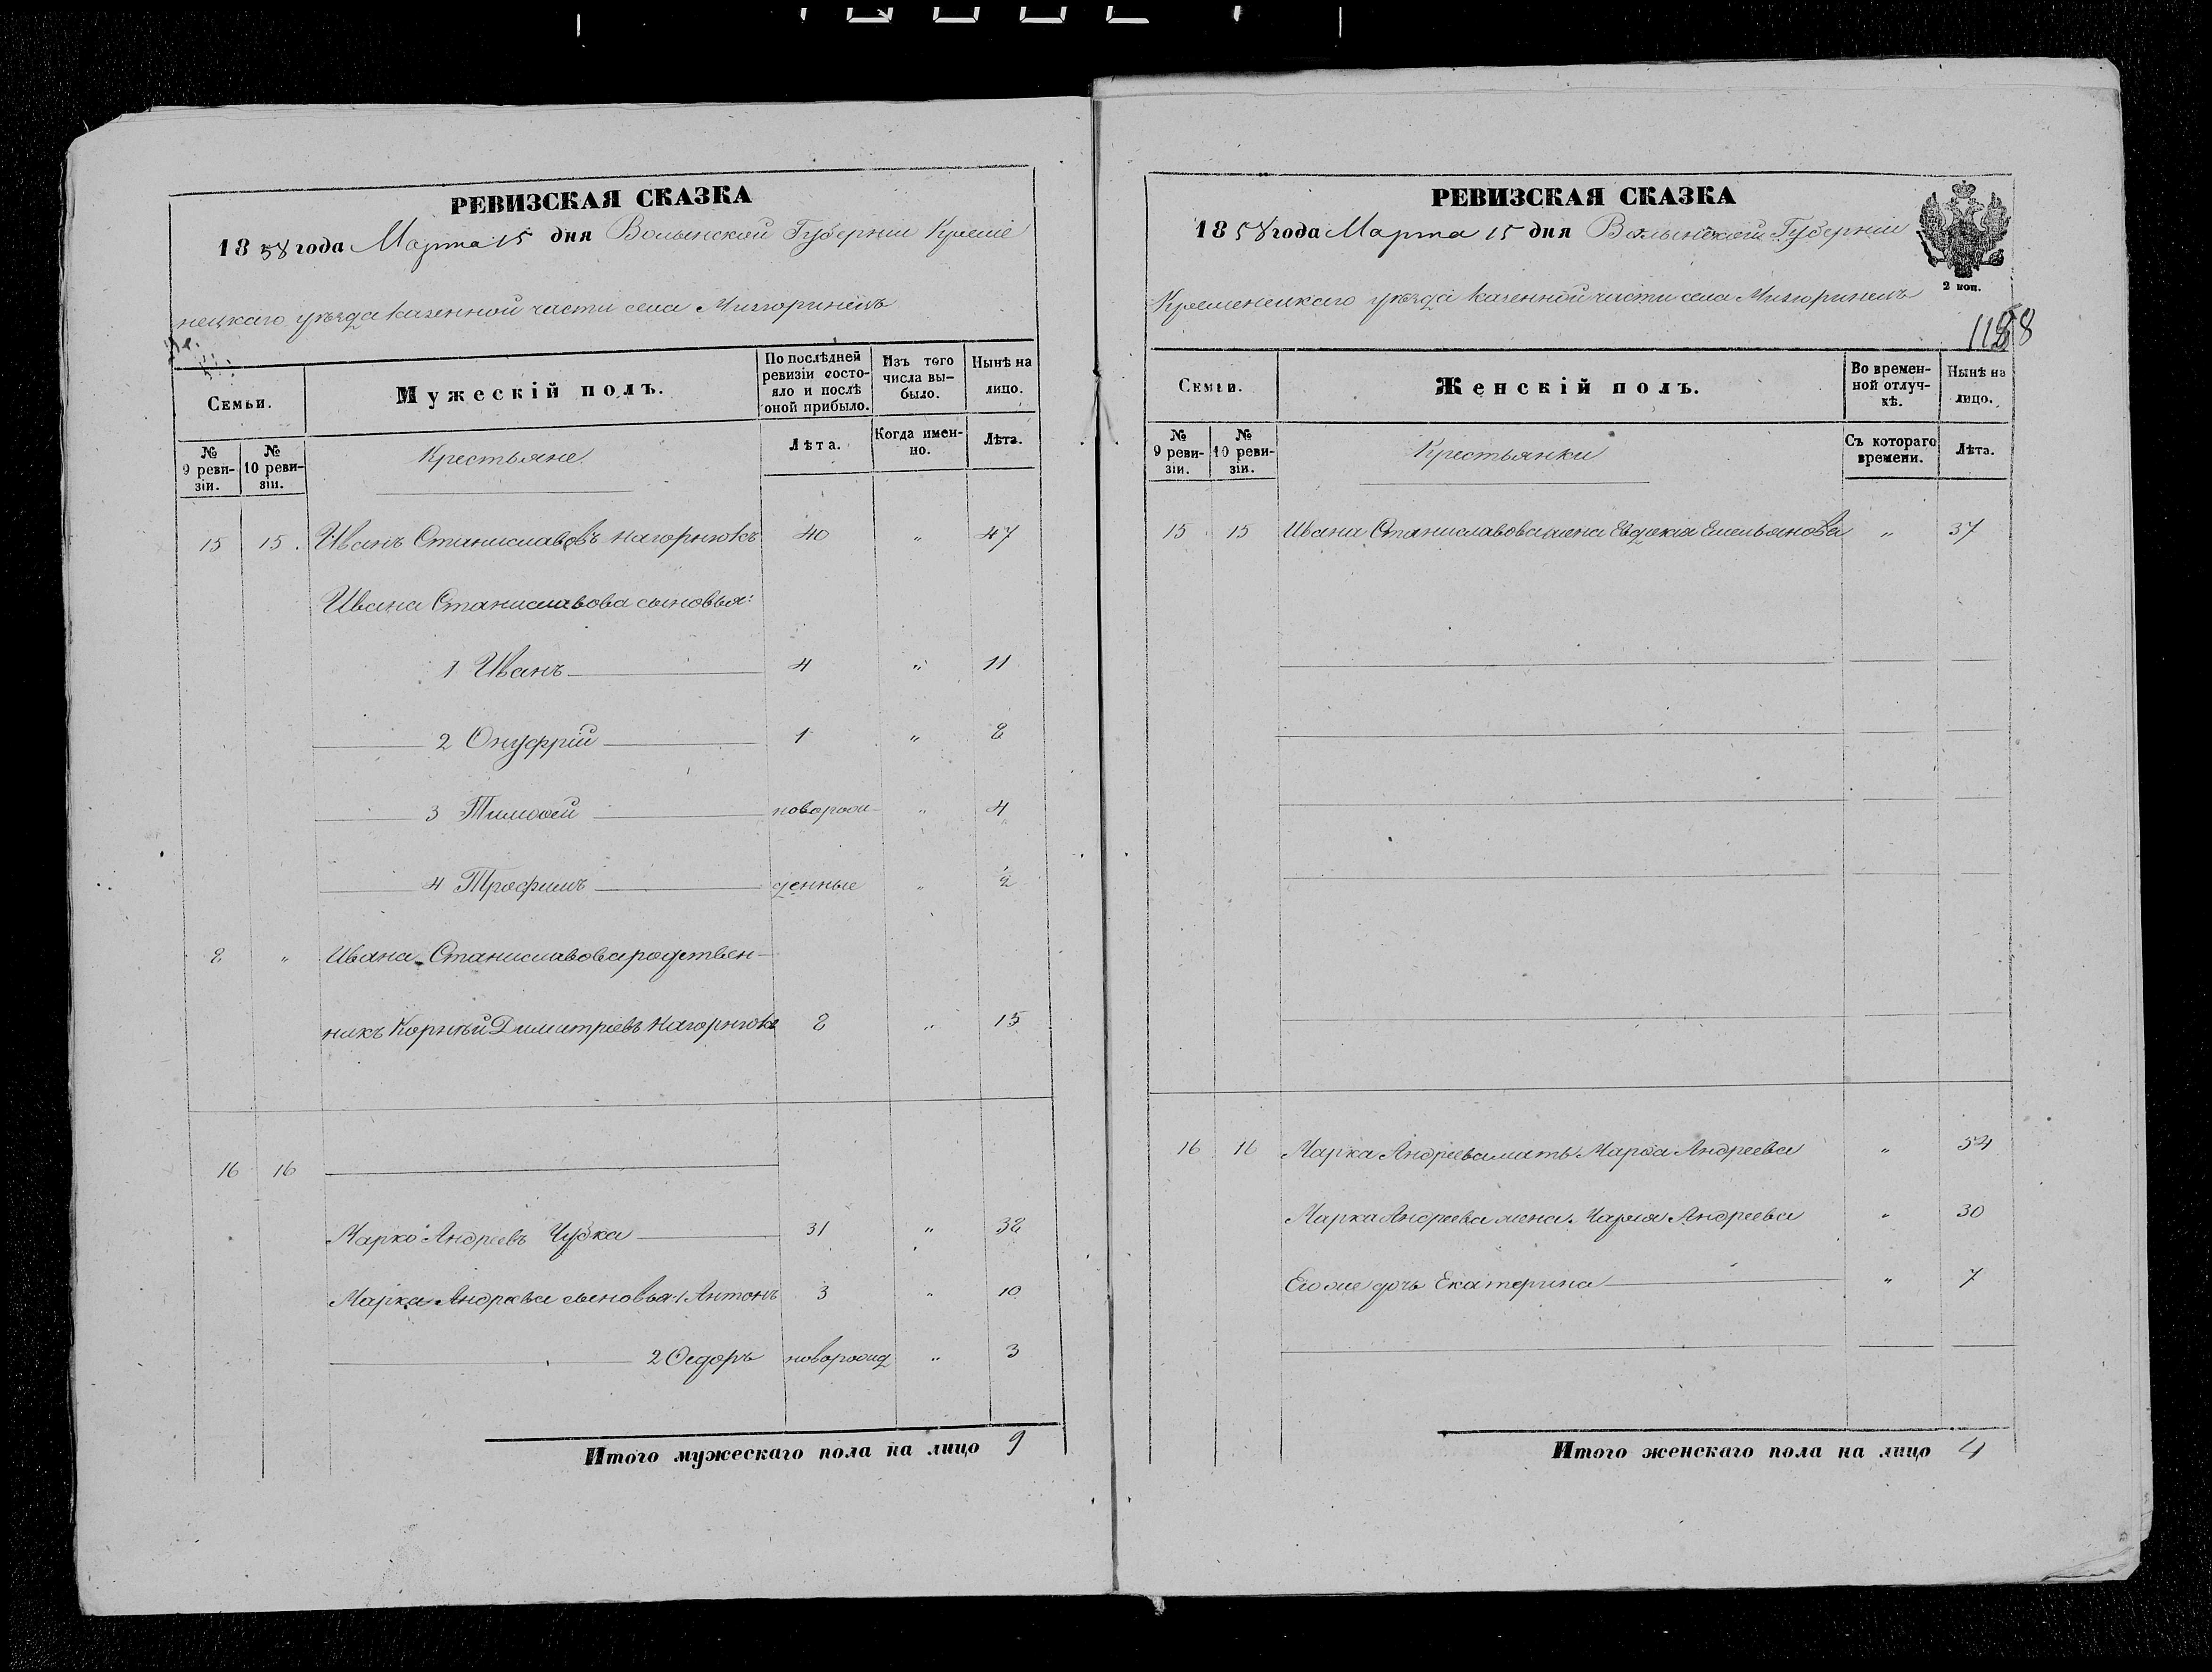 РЕВИЗСКАЯ СКАЗКА
1858 года Марта 15 дня Волынской Губернии Креме
нецкаго уѣзда казенной части села Мизюринецъ
Семьи.
Мужескій полъ.
По послѣдней ревизіи состояло и послѣ оной прибыло.
Изъ того числа выбыло.
Нынѣ на лицо.
№ 9 ревизіи.
№ 10 ревизіи.
Крестьяне
Лѣта.
Когда именно.
Лѣта.
15 15. Иванъ Станиславовъ Нагорнюкъ 40 " 47
Ивана Станиславова сыновья:
1 Иванъ 4 " 11
2 Онуфрій 1 " 8
3 Тимофей новорож- " 4
4 Трофимъ денные " 2
8 " Ивана Станиславова родствен-
никъ Корнѣй Димитріевъ Нагорнюкъ 8 " 15
16 16
Марко Андреевъ Чубка 31 " 38
Марка Андреева сыновья 1 Антонъ 3 " 10
2 Ѳедоръ новорожд " 3
Итого мужескаго пола на лицо 9
РЕВИЗСКАЯ СКАЗКА
1858 года Марта 15 дня Волынской Губерніи
Кременецкаго уѣзда казенной части села Мизюринецъ
2 коп.
Семьи.
Женскій полъ.
Во временной отлучкѣ.
Нынѣ на лицо.
№ 9 ревизіи.
№ 10 ревизіи.
Крестьянки
Съ котораго времени.
Лѣта.
15 15 Ивана Станиславова жена Евдокія Емельянова " 37
16 16 Марка Андреева мать Марѳа Андреева " 54
Марка Андреева жена Марія Андреева " 30
Его же дочь Екатерина " 7
Итого женскаго пола на лицо 4